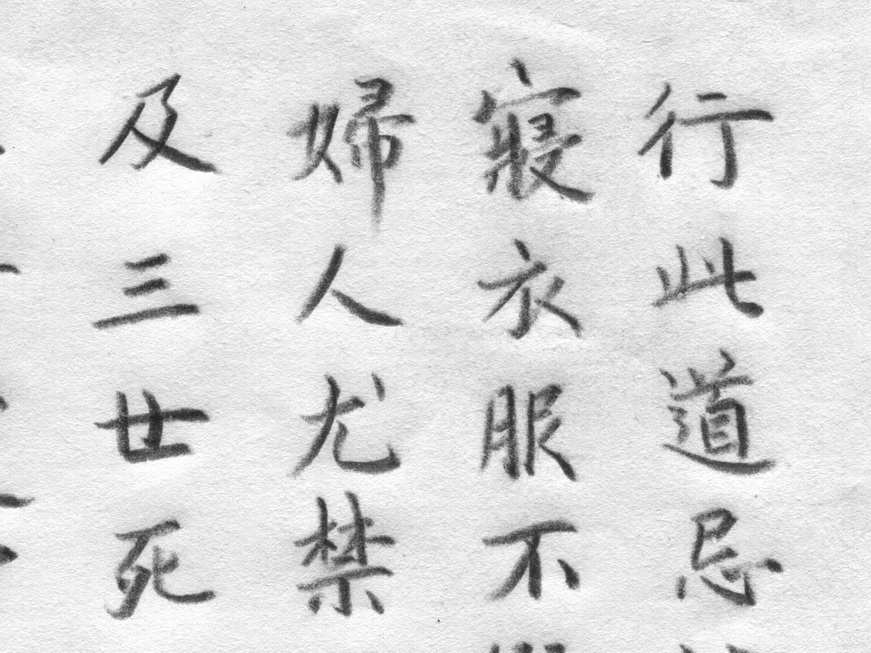 行此道忌
寢衣服不
婦人尤禁
及三廿死